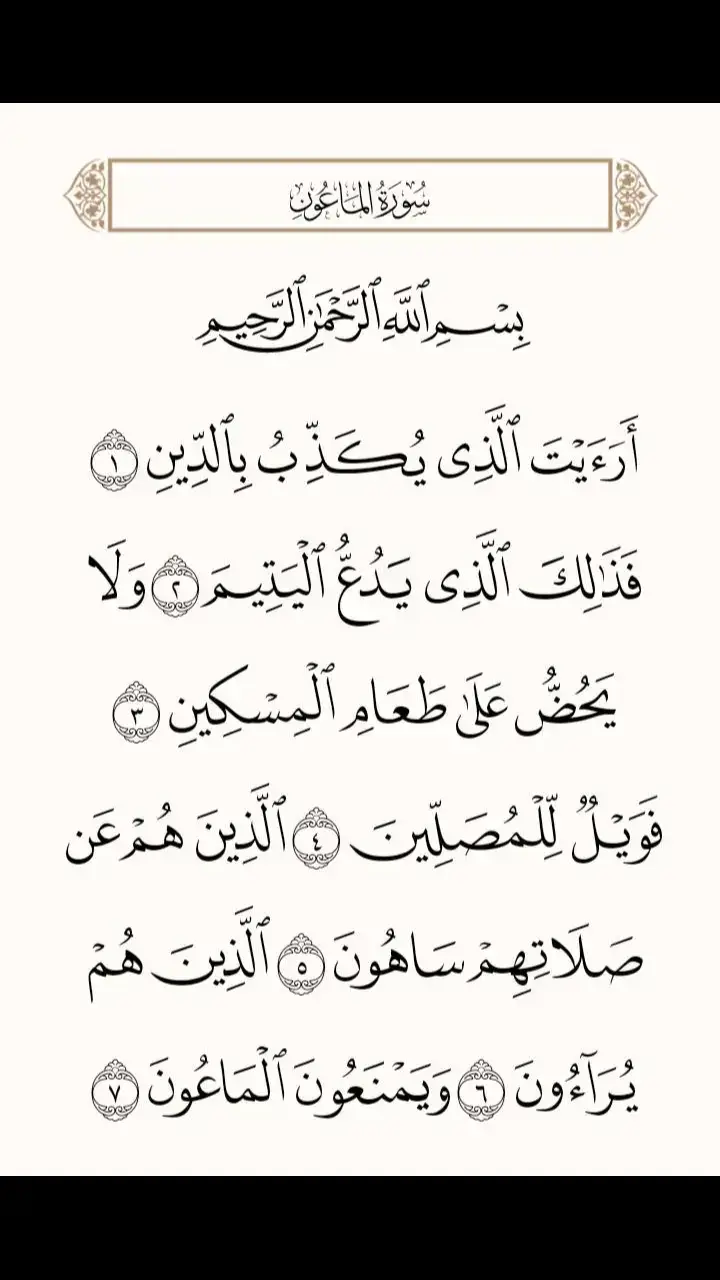 سُورَةُ المَاعُونِ
بِسْمِ ٱللَّهِ ٱلرَّحْمَٰنِ ٱلرَّحِيمِ
أَرَءَيْتَ ٱلَّذِى يُكَذِّبُ بِٱلدِّينِ ١
فَذَٰلِكَ ٱلَّذِى يَدُعُّ ٱلْيَتِيمَ ٢ وَلَا
يَحُضُّ عَلَىٰ طَعَامِ ٱلْمِسْكِينِ ٣
فَوَيْلٌ لِّلْمُصَلِّينَ ٤ ٱلَّذِينَ هُمْ عَن
صَلَاتِهِمْ سَاهُونَ ٥ ٱلَّذِينَ هُمْ
يُرَآءُونَ ٦ وَيَمْنَعُونَ ٱلْمَاعُونَ ٧